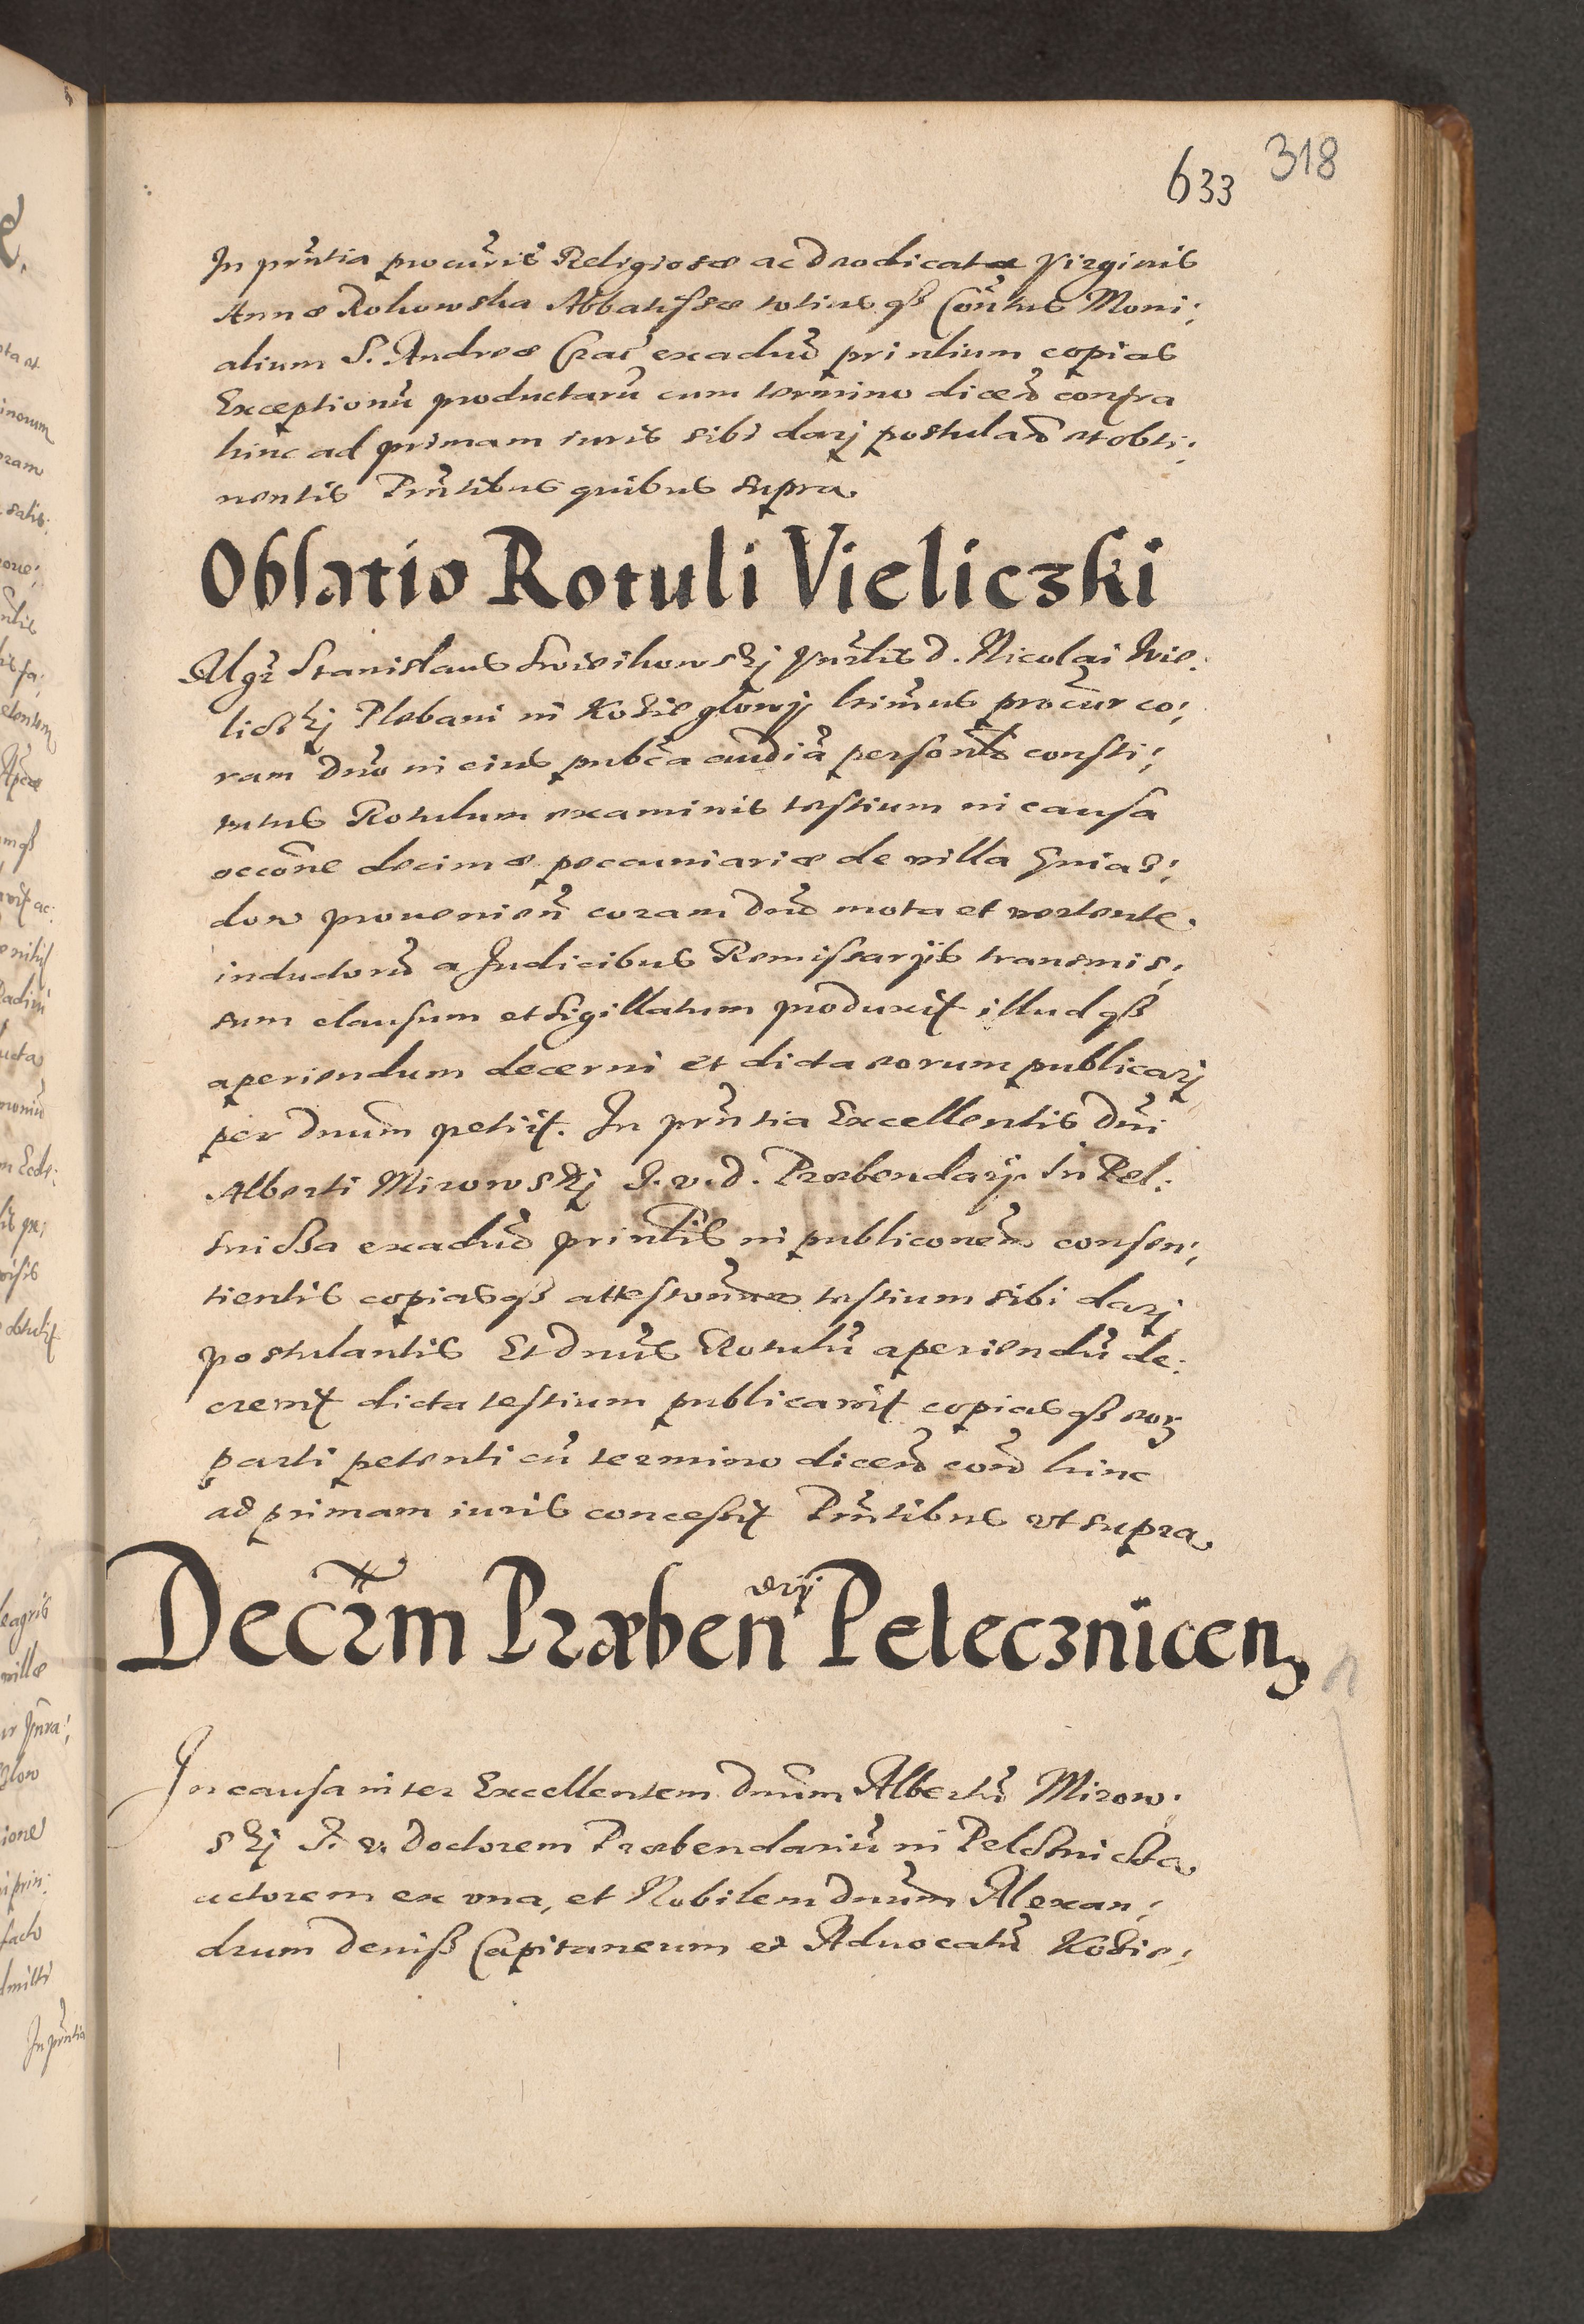 633 318
In prñtia procuris Religiosæ ac Deodicatæ Virginis
Annæ Rokowska Abbatissæ totiusqß Contus Moni:
alium S. Andreæ Crac ex aduo prinlium copias
Exceptionũ productarũ cum termino diceñ contra
hinc ad primam iuris sibi darj postulañ et obti:
nentis Prñtibus quibus supra.
Oblatio Rotuli Vieliczki
Mgr Stanislaus D. Nicolai Wie:
liczkj Plebani in Kozieglowÿ hinus procur co:
ram Dño in eius pubca audia personlr consti:
tutus Rotulum examinis testium in causa
occone decimæ pecuniariæ de villa Gniaz:
dow prouenieñ coram Dño mota et vertente.
inductorũ a Judicibus Remissarÿs transmis:
sum clausum et sigillatum produxit illudqß
aperiendum decerni et dicta eorum publicarj
per Dnũm petiit. In prñtia Excellentis Dñi
Alberti Mirowskj J. v. d. Præbendarÿ in Pel:
cnicza ex aduo prinlis in publiconem consen:
tientis copiasqß attestonum testium sibi darj
postulantis Et Dnũs Rotulũ aperiendũ de:
creuit dicta testium publicauit copiasqß eorũ
parti petenti cũ termino diceñ coñ hinc
ad primam iuris concessit Prñtibus vt supra.
Decrm Præbendrÿ Peleczniceñ
In causa inter Excellentem Dnũm Albertũ Mirow:
skj J. v. Doctorem Præbendariũ in Pelcznicza
actorem ex vna, et Nobilem Dnũm Alexan:
drum Deniß Capitaneum et Aduocatũ Kozie: